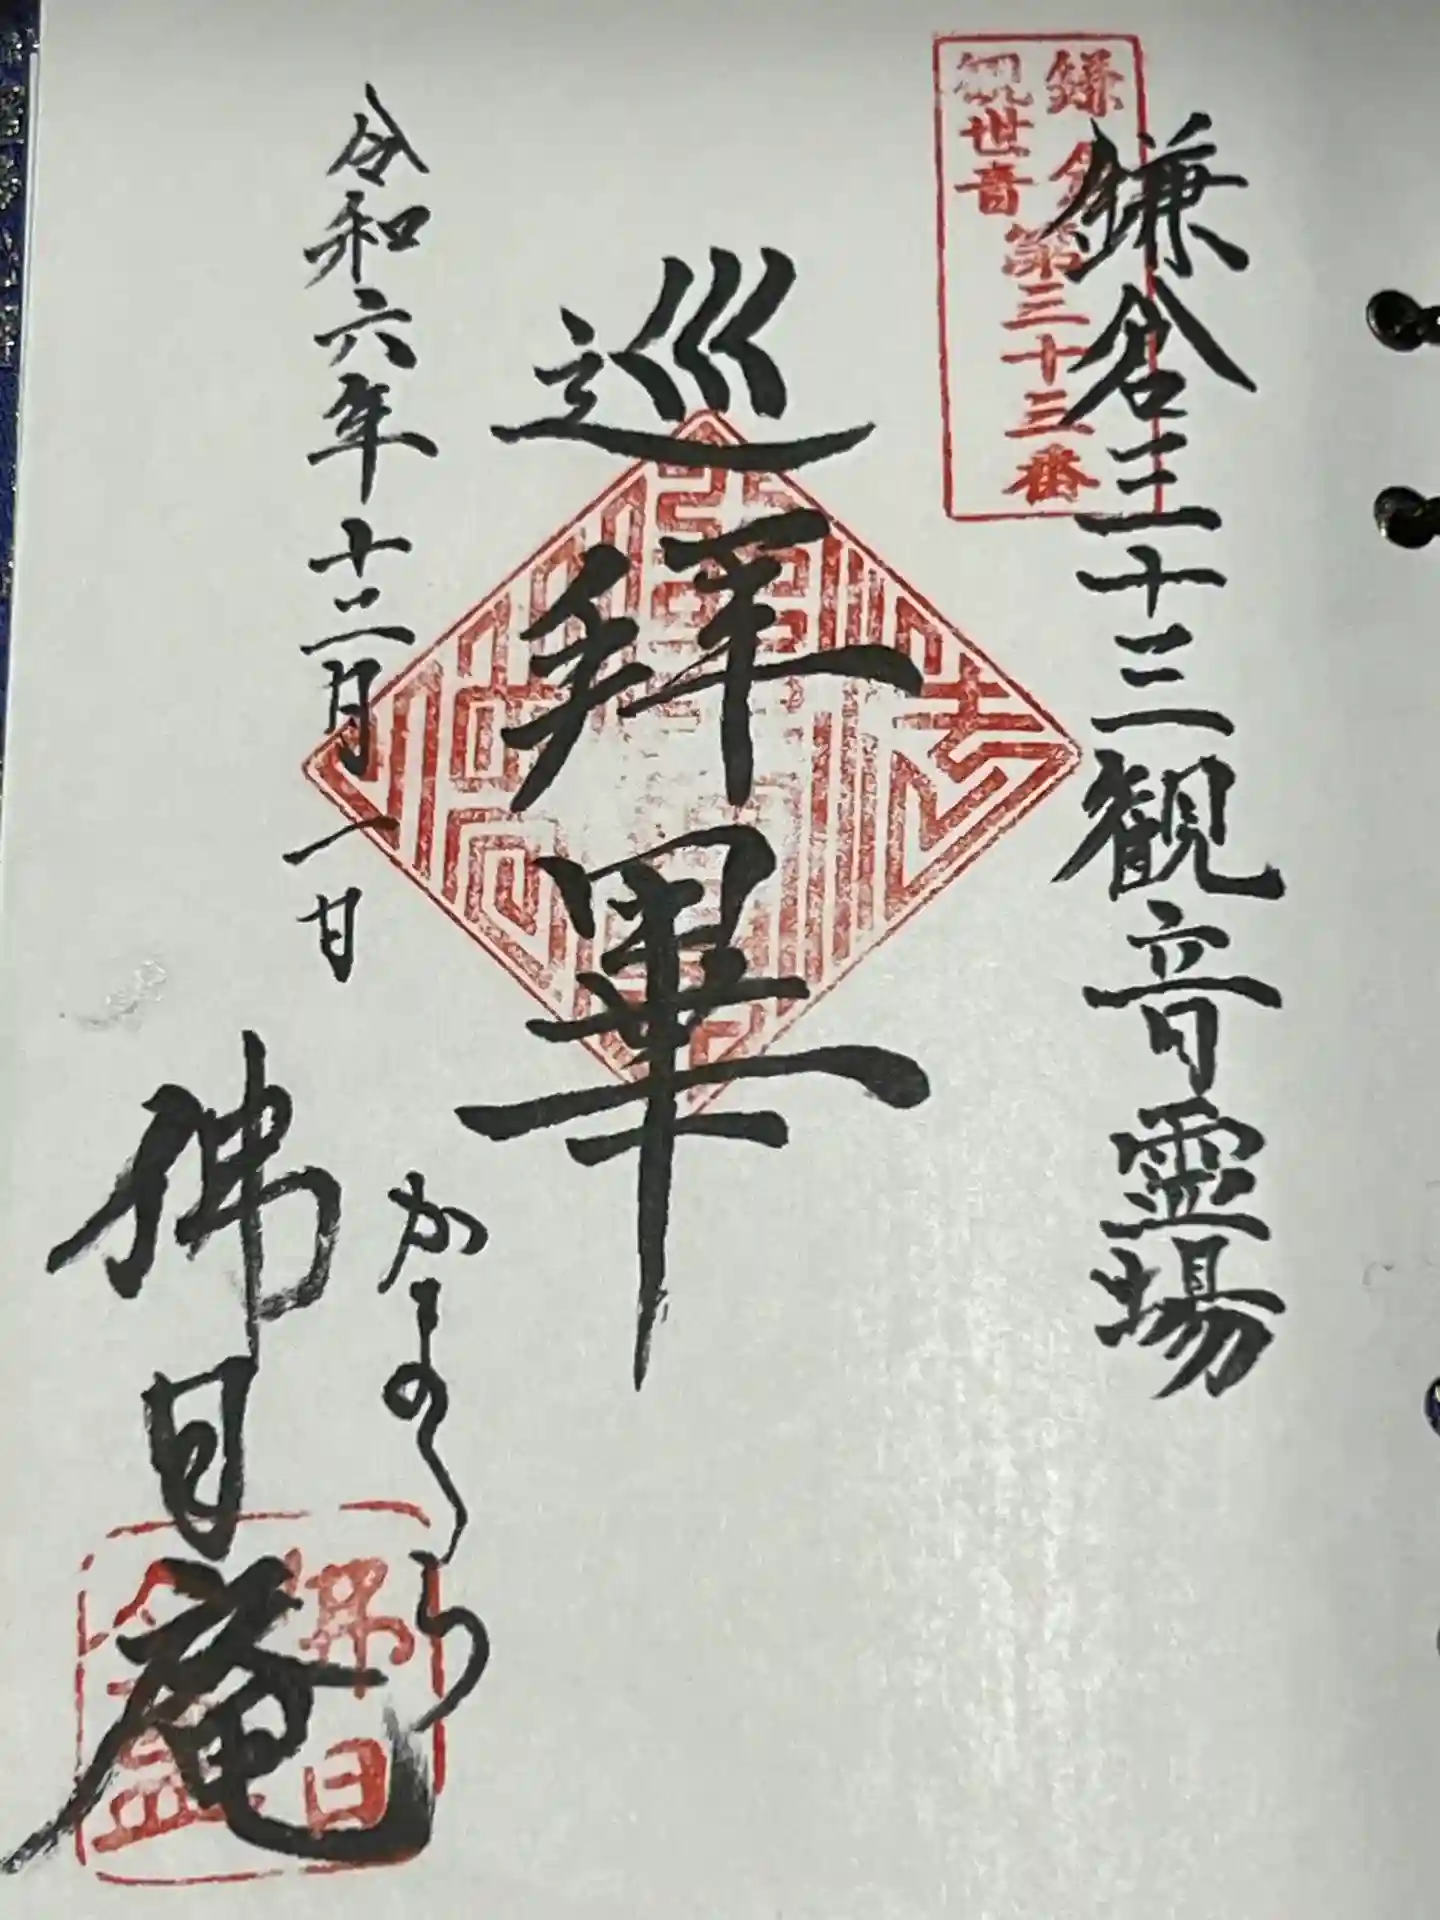 鎌倉三十三観音霊場
鎌倉
観世音
第三十三番
巡拝畢
令和六年十二月一日
かまくら
佛日庵